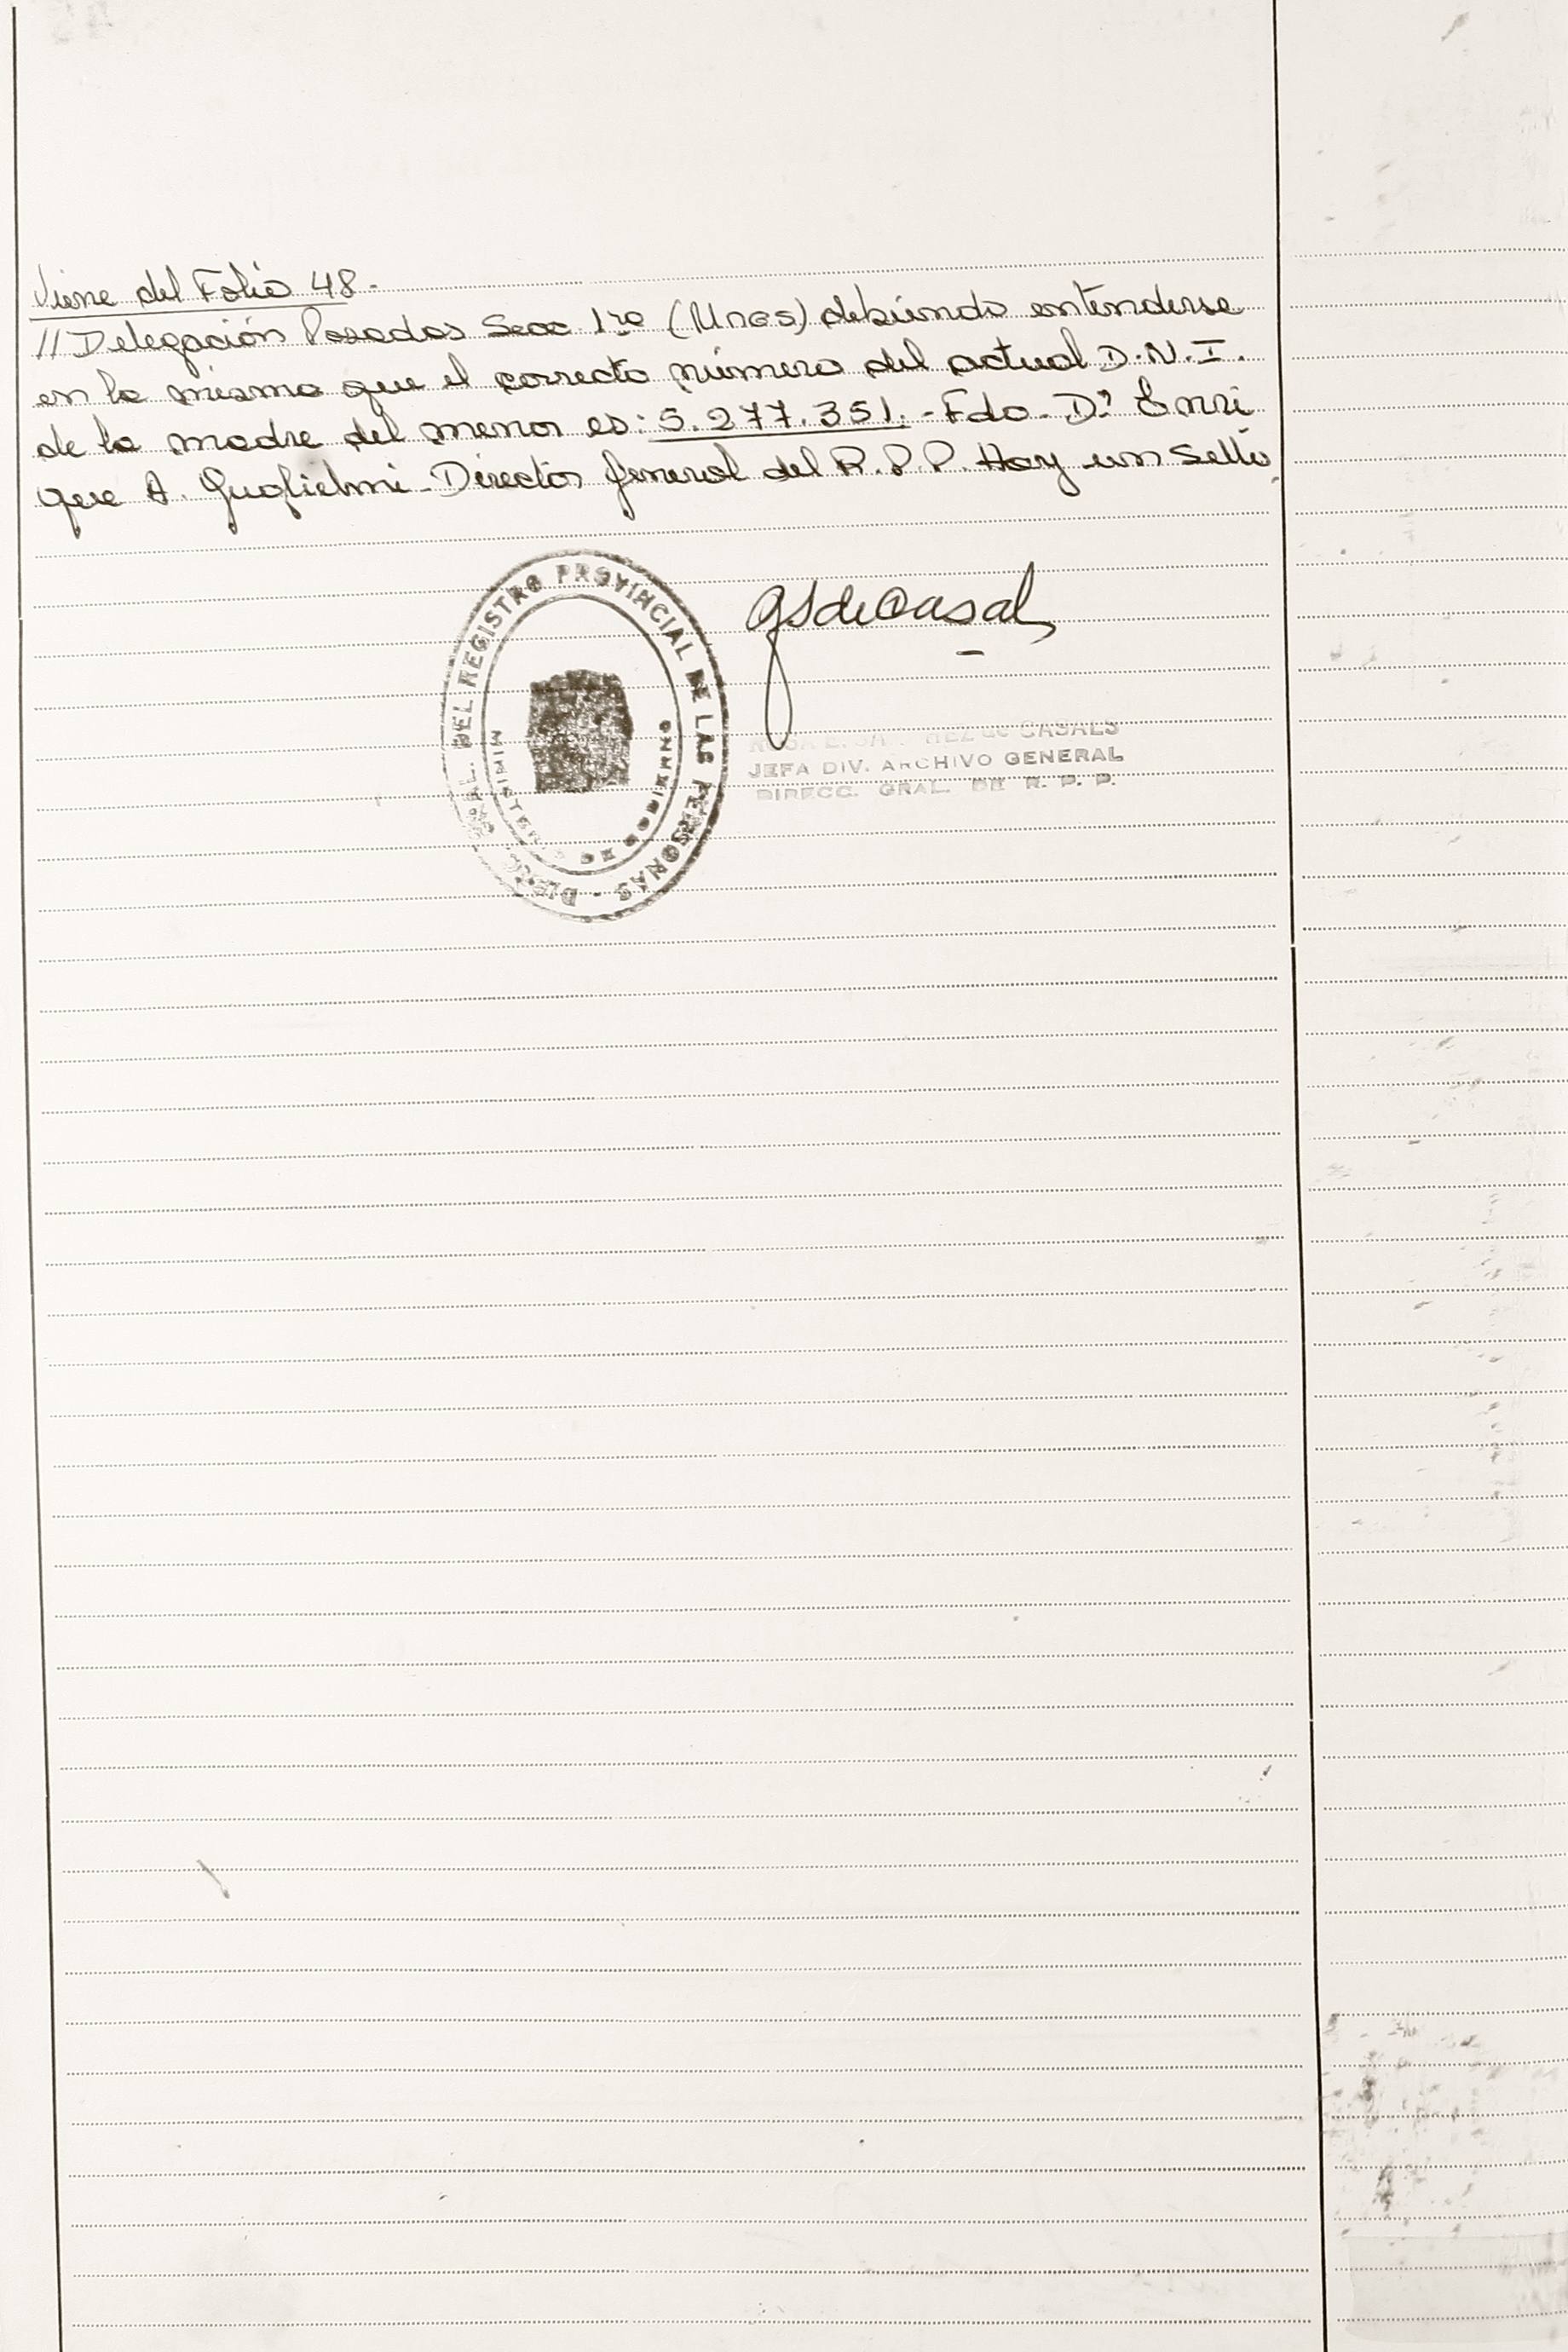 Viene del Folio 48.-
//Delegación Posadas Secc 1ra (Mnes) debiendo entenderse
en la misma que el correcto número del actual D.N.I.
de la madre del menor es: 5.277.351.-Fdo-Dº Enri
que A. Guglielmi-Director General del R.P.P. Hay un Sello.
DIREC. GRAL. DEL REGISTRO PROVINCIAL DE LAS PERSONAS -
MINISTERIO DE GOBIERNO
de Casal
CASALS
JEFA DIV. ARCHIVO GENERAL
DIRECC. GRAL. DE R. P. P.